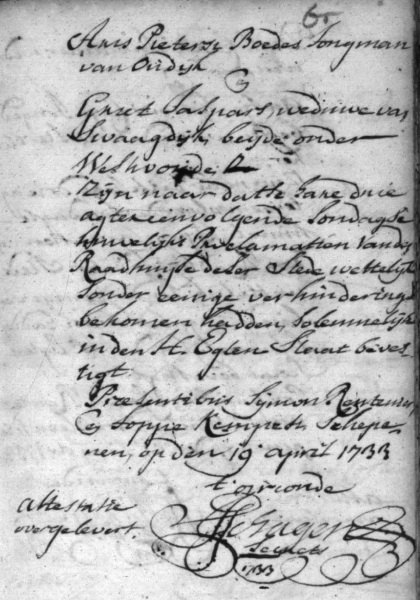 Aris Pietersz Boedes Jongman
van Oirdijk
&
Griet Jaspars, weduwe van
Swaagdijk, beijde onder
Westwoude,
Zijn naar datse hare drie
agtereenvolgende Sondagse
huwelijks Proclamatien van de
Raadhuijse deser Stede wettelijk
sonder eenige verhinderinge
bekomen hadden, solemnelijk
in den H. Egten Staat beves-
tigt
Præsentibus Sijmon
& Joppie Schepe-
nen, op den 19 april 1733
t'oirconde
attestatie
overgelevert.
Schagen
Secrets
1733